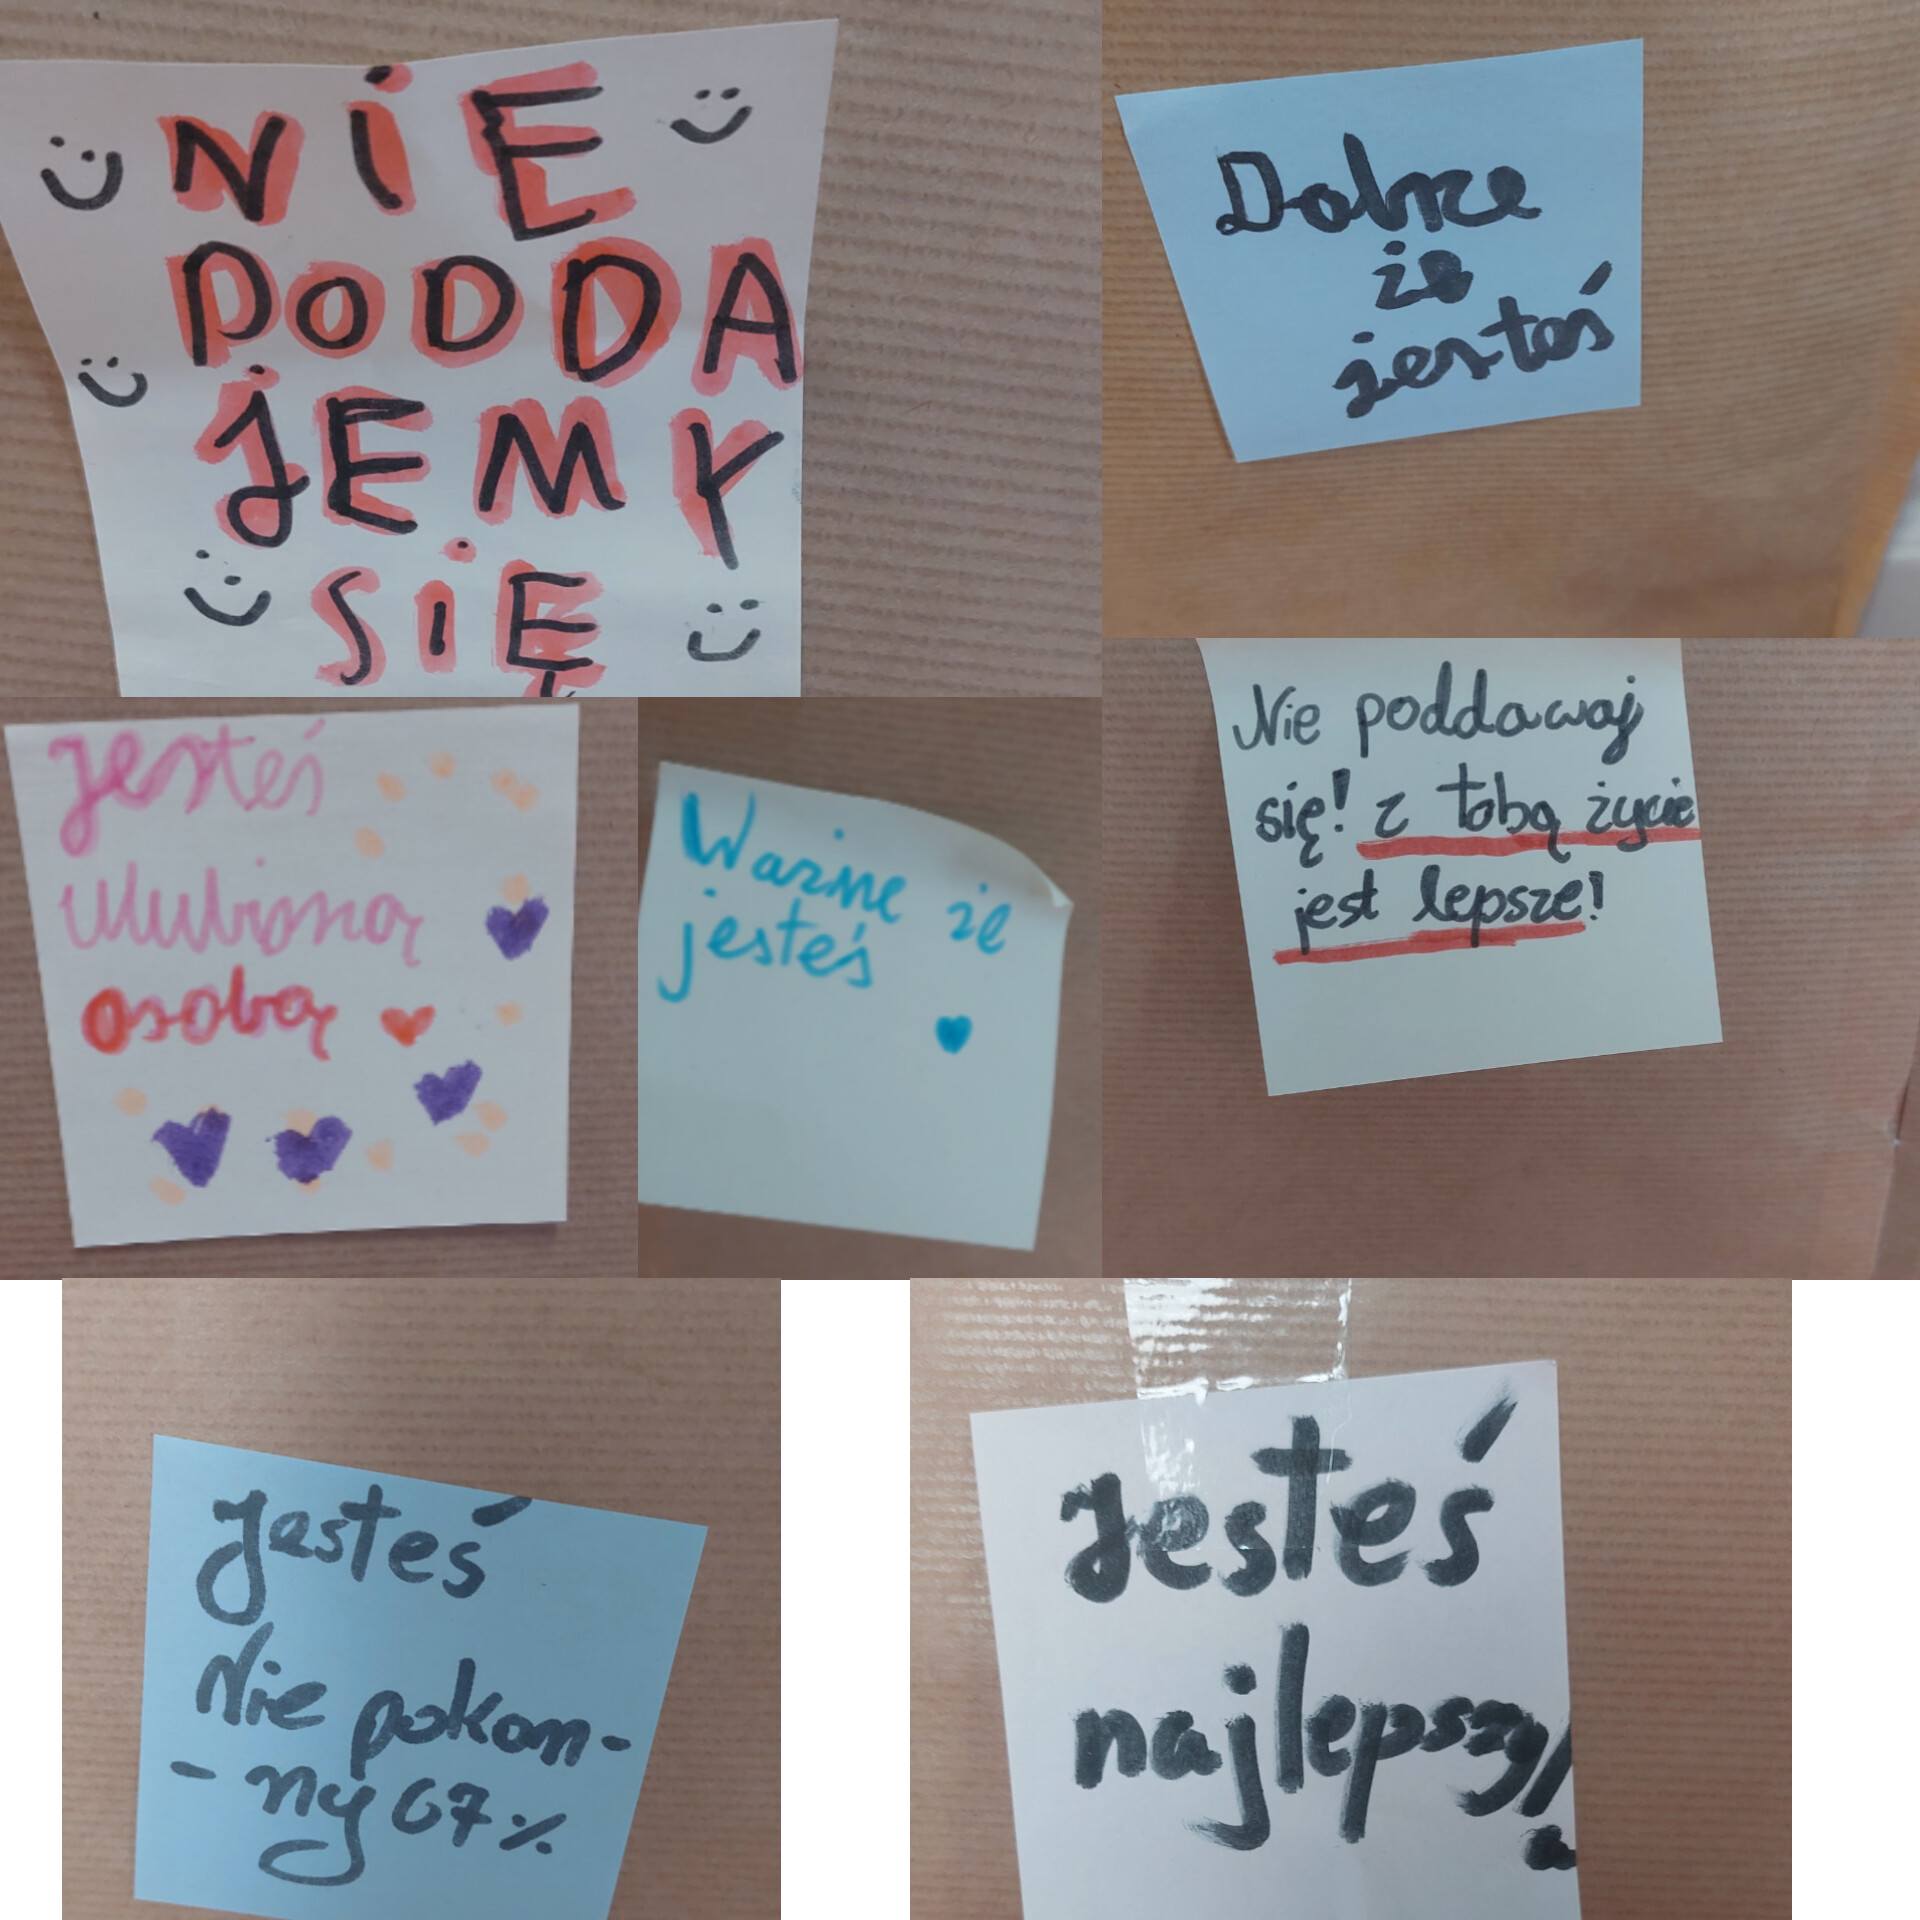 NiE
PODDA
JEMY
SIĘ
Dobrze
że
jesteś
Jesteś
ulubioną
osobą
Ważne że
jesteś
Nie poddawaj
się! z tobą życie
jest lepsze!
Jesteś
Nie pokon-
- ny 67%
Jesteś
najlepszy/
a